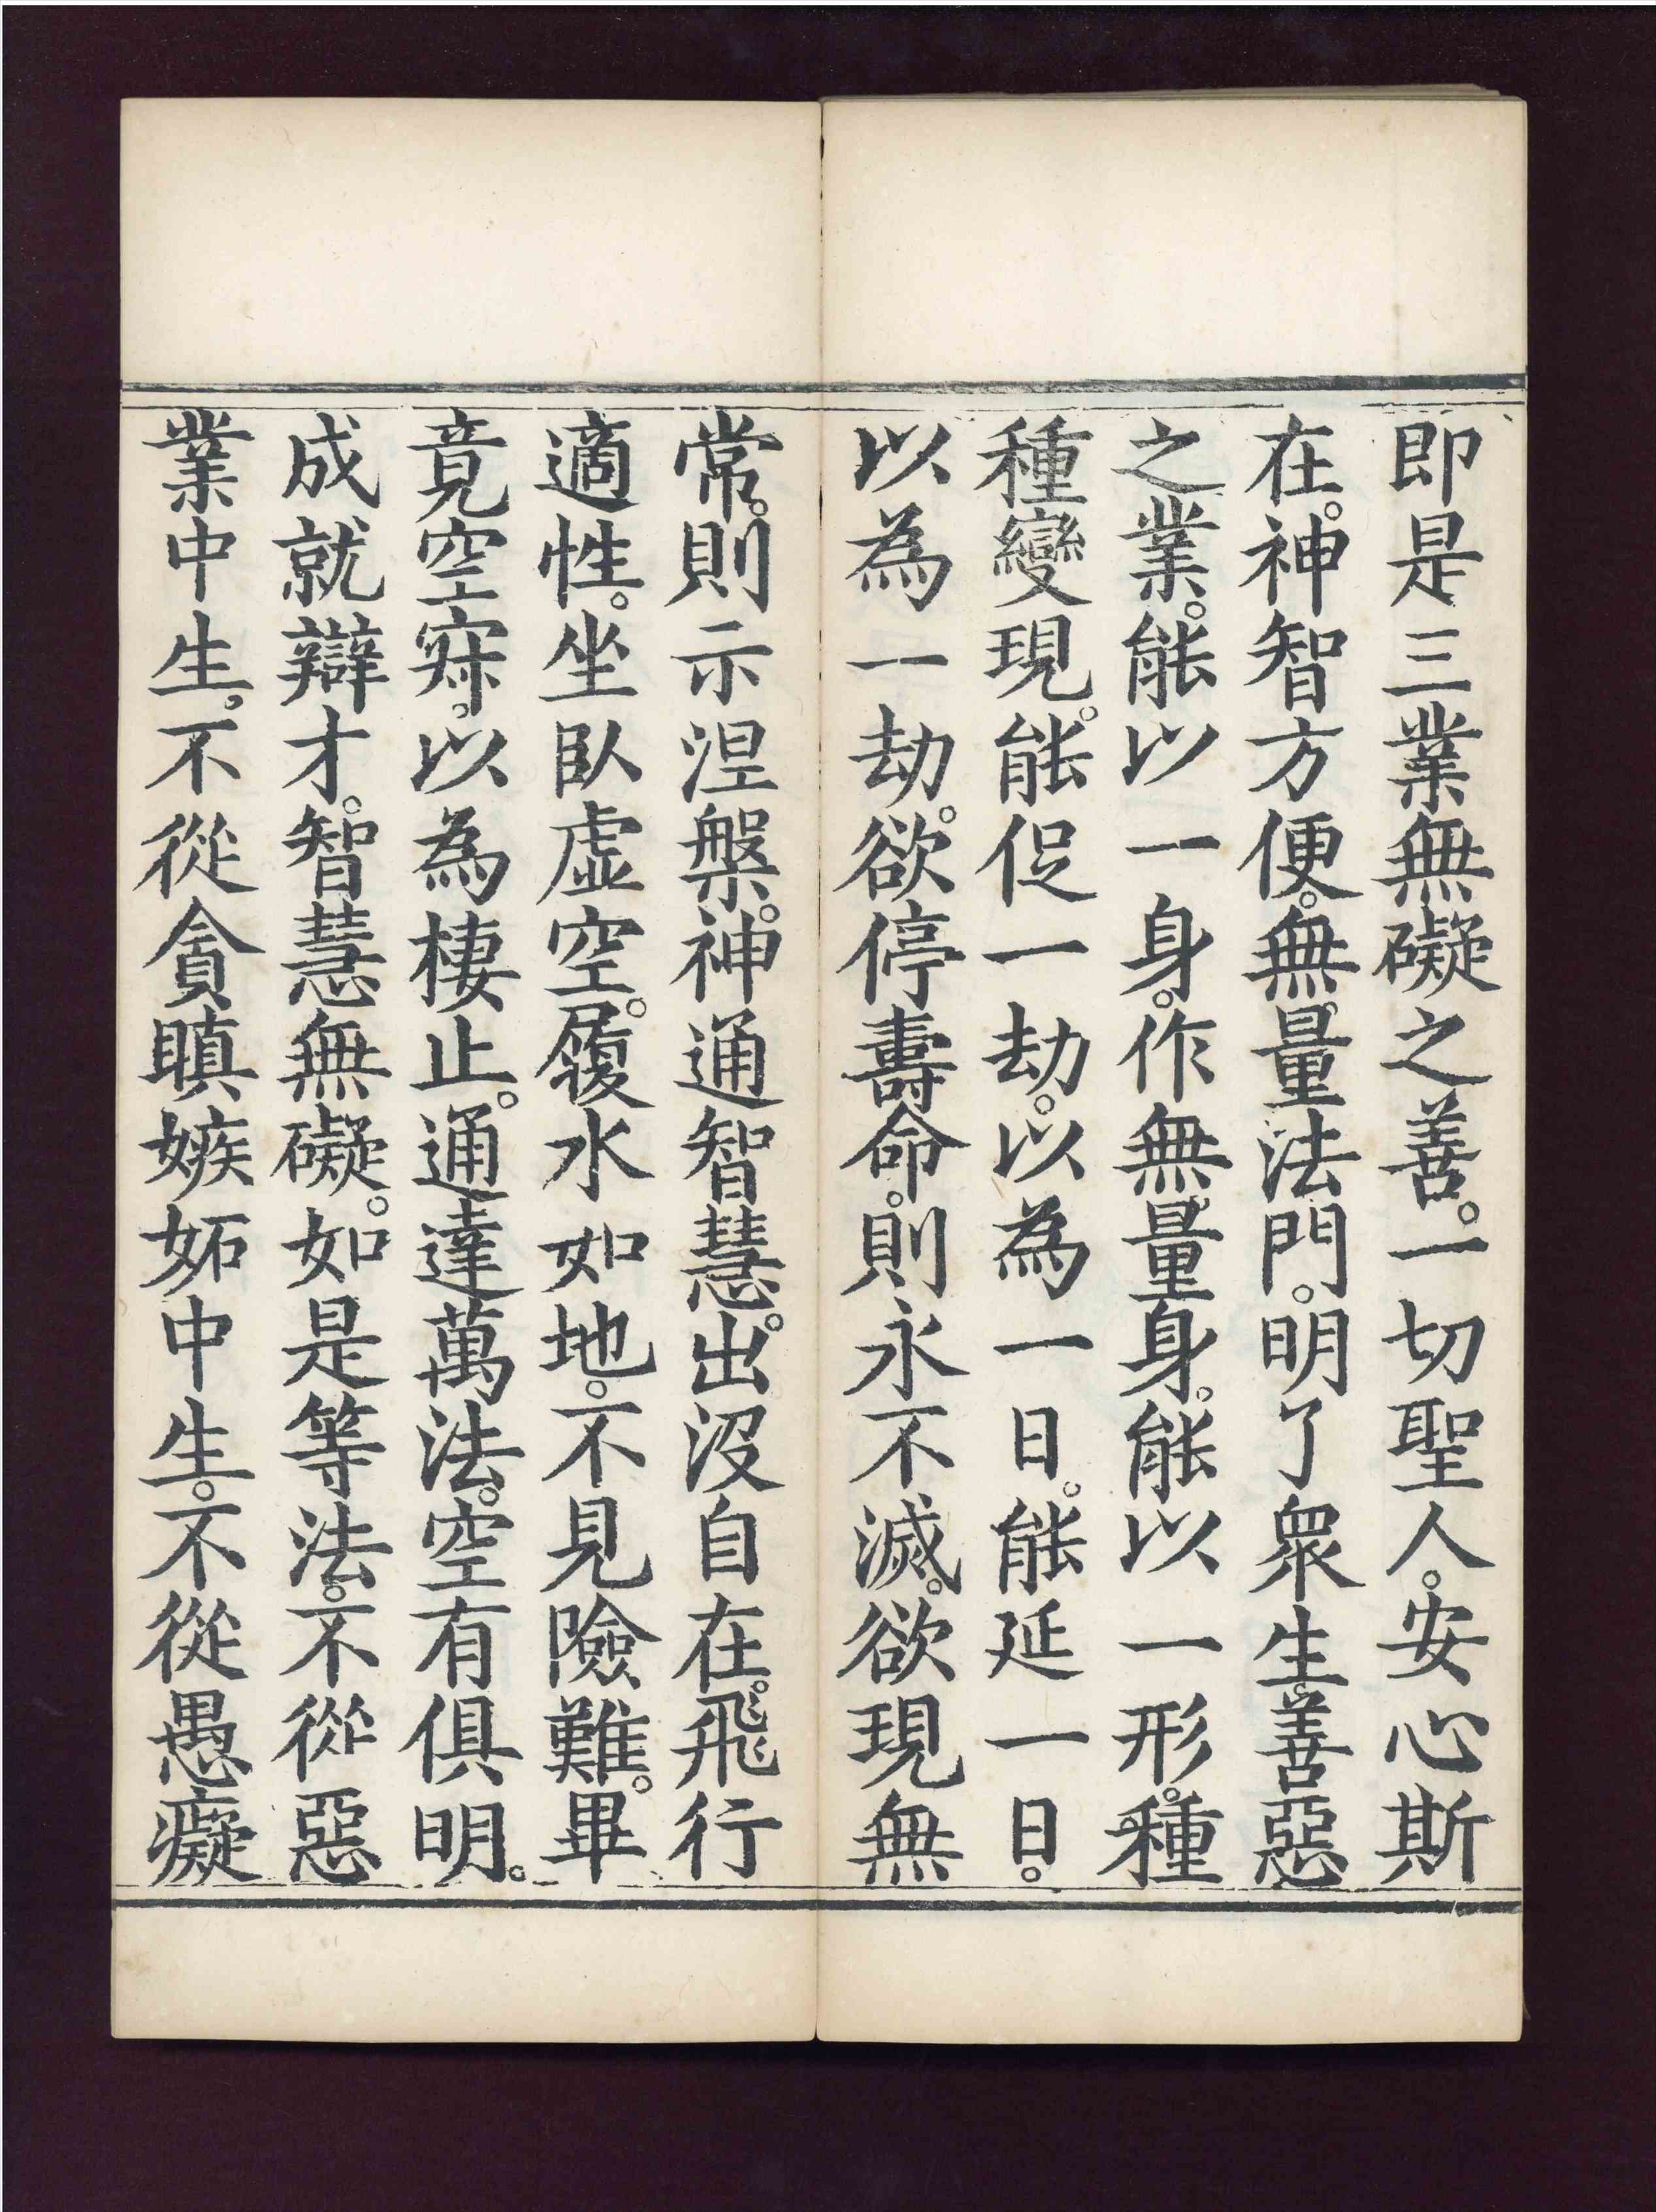 即是三業無礙之善。一切聖人。安心斯
在。神智方便。無量法門。明了衆生。善惡
之業。能以一身。作無量身。能以一形。種
種變現。能促一劫。以為一日。能延一日。
以為一劫。欲停壽命。則永不滅。欲現無
常。則示涅槃。神通智慧。出沒自在。飛行
適性。坐臥虛空。履水如地。不見險難。畢
竟空寂。以為棲止。通達萬法。空有俱明。
成就辯才。智慧無礙。如是等法。不從惡
業中生。不從貪瞋嫉妬中生。不從愚癡